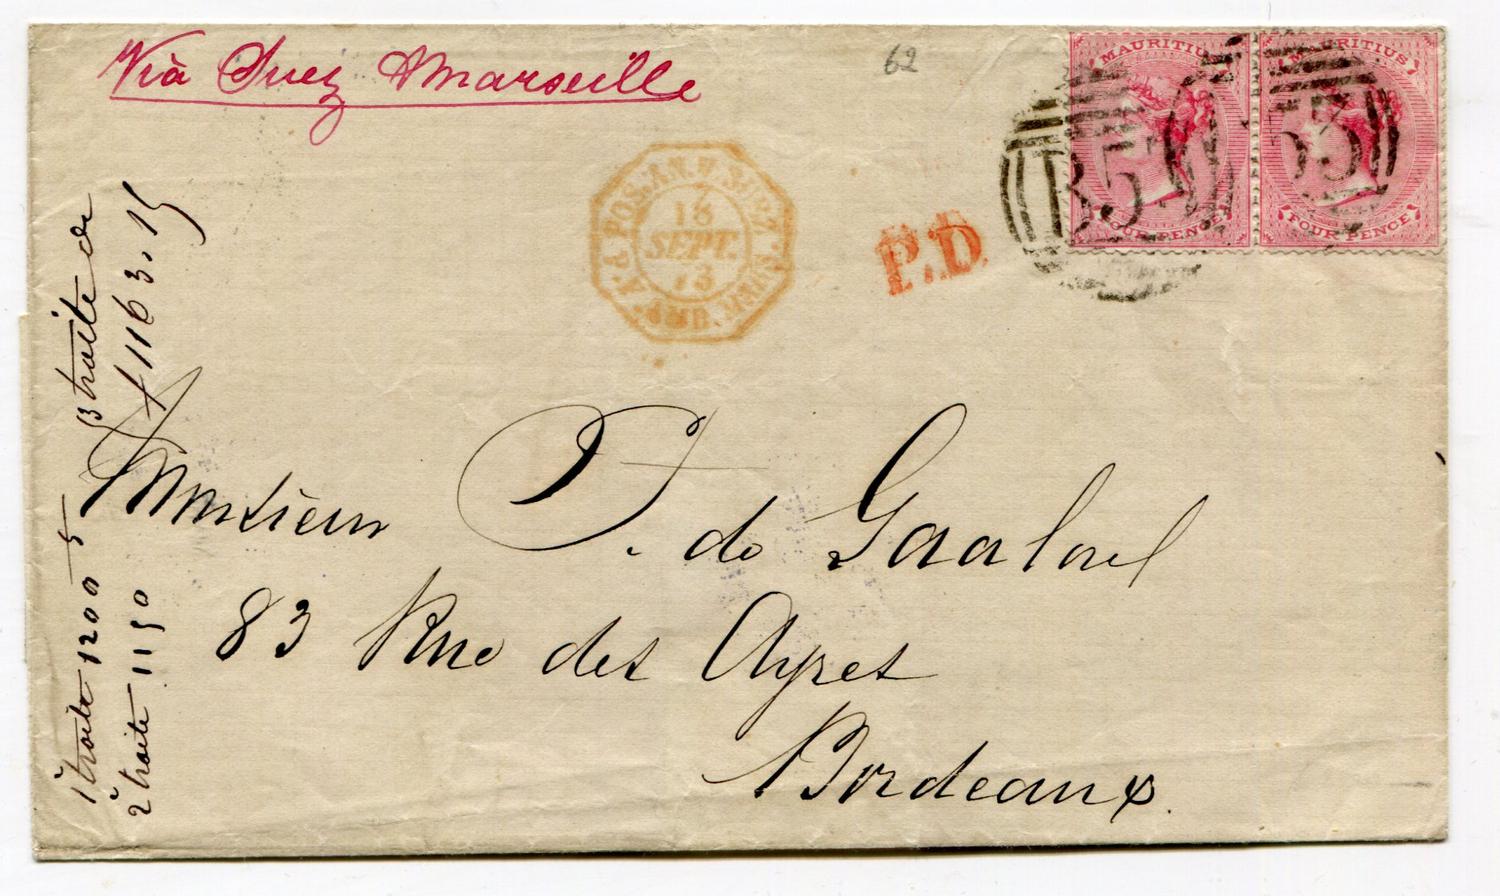 Via Suez & Marseille
62
MAURITIUS
FOUR PENCE
MAURITIUS
FOUR PENCE
B53
B53
POS. AN. V. SUEZ
16
SEPT.
73
AMB. MARS.
P.D.
Monsieur F. de
83 Rue des Ayres
Bordeaux
1º traite 1200
2º traite 1150
3 traite de
1163.15